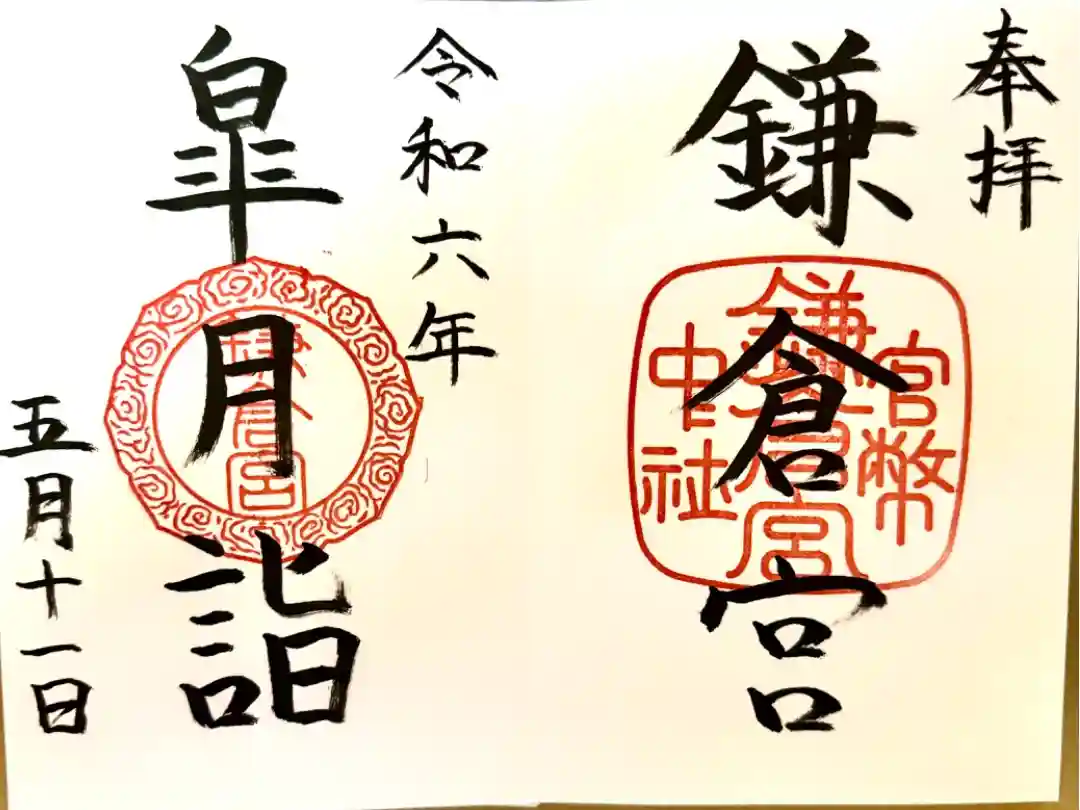 奉拝
鎌倉宮
官幣
鎌倉宮
中社
令和六年
皐月詣
鎌倉宮
五月十一日